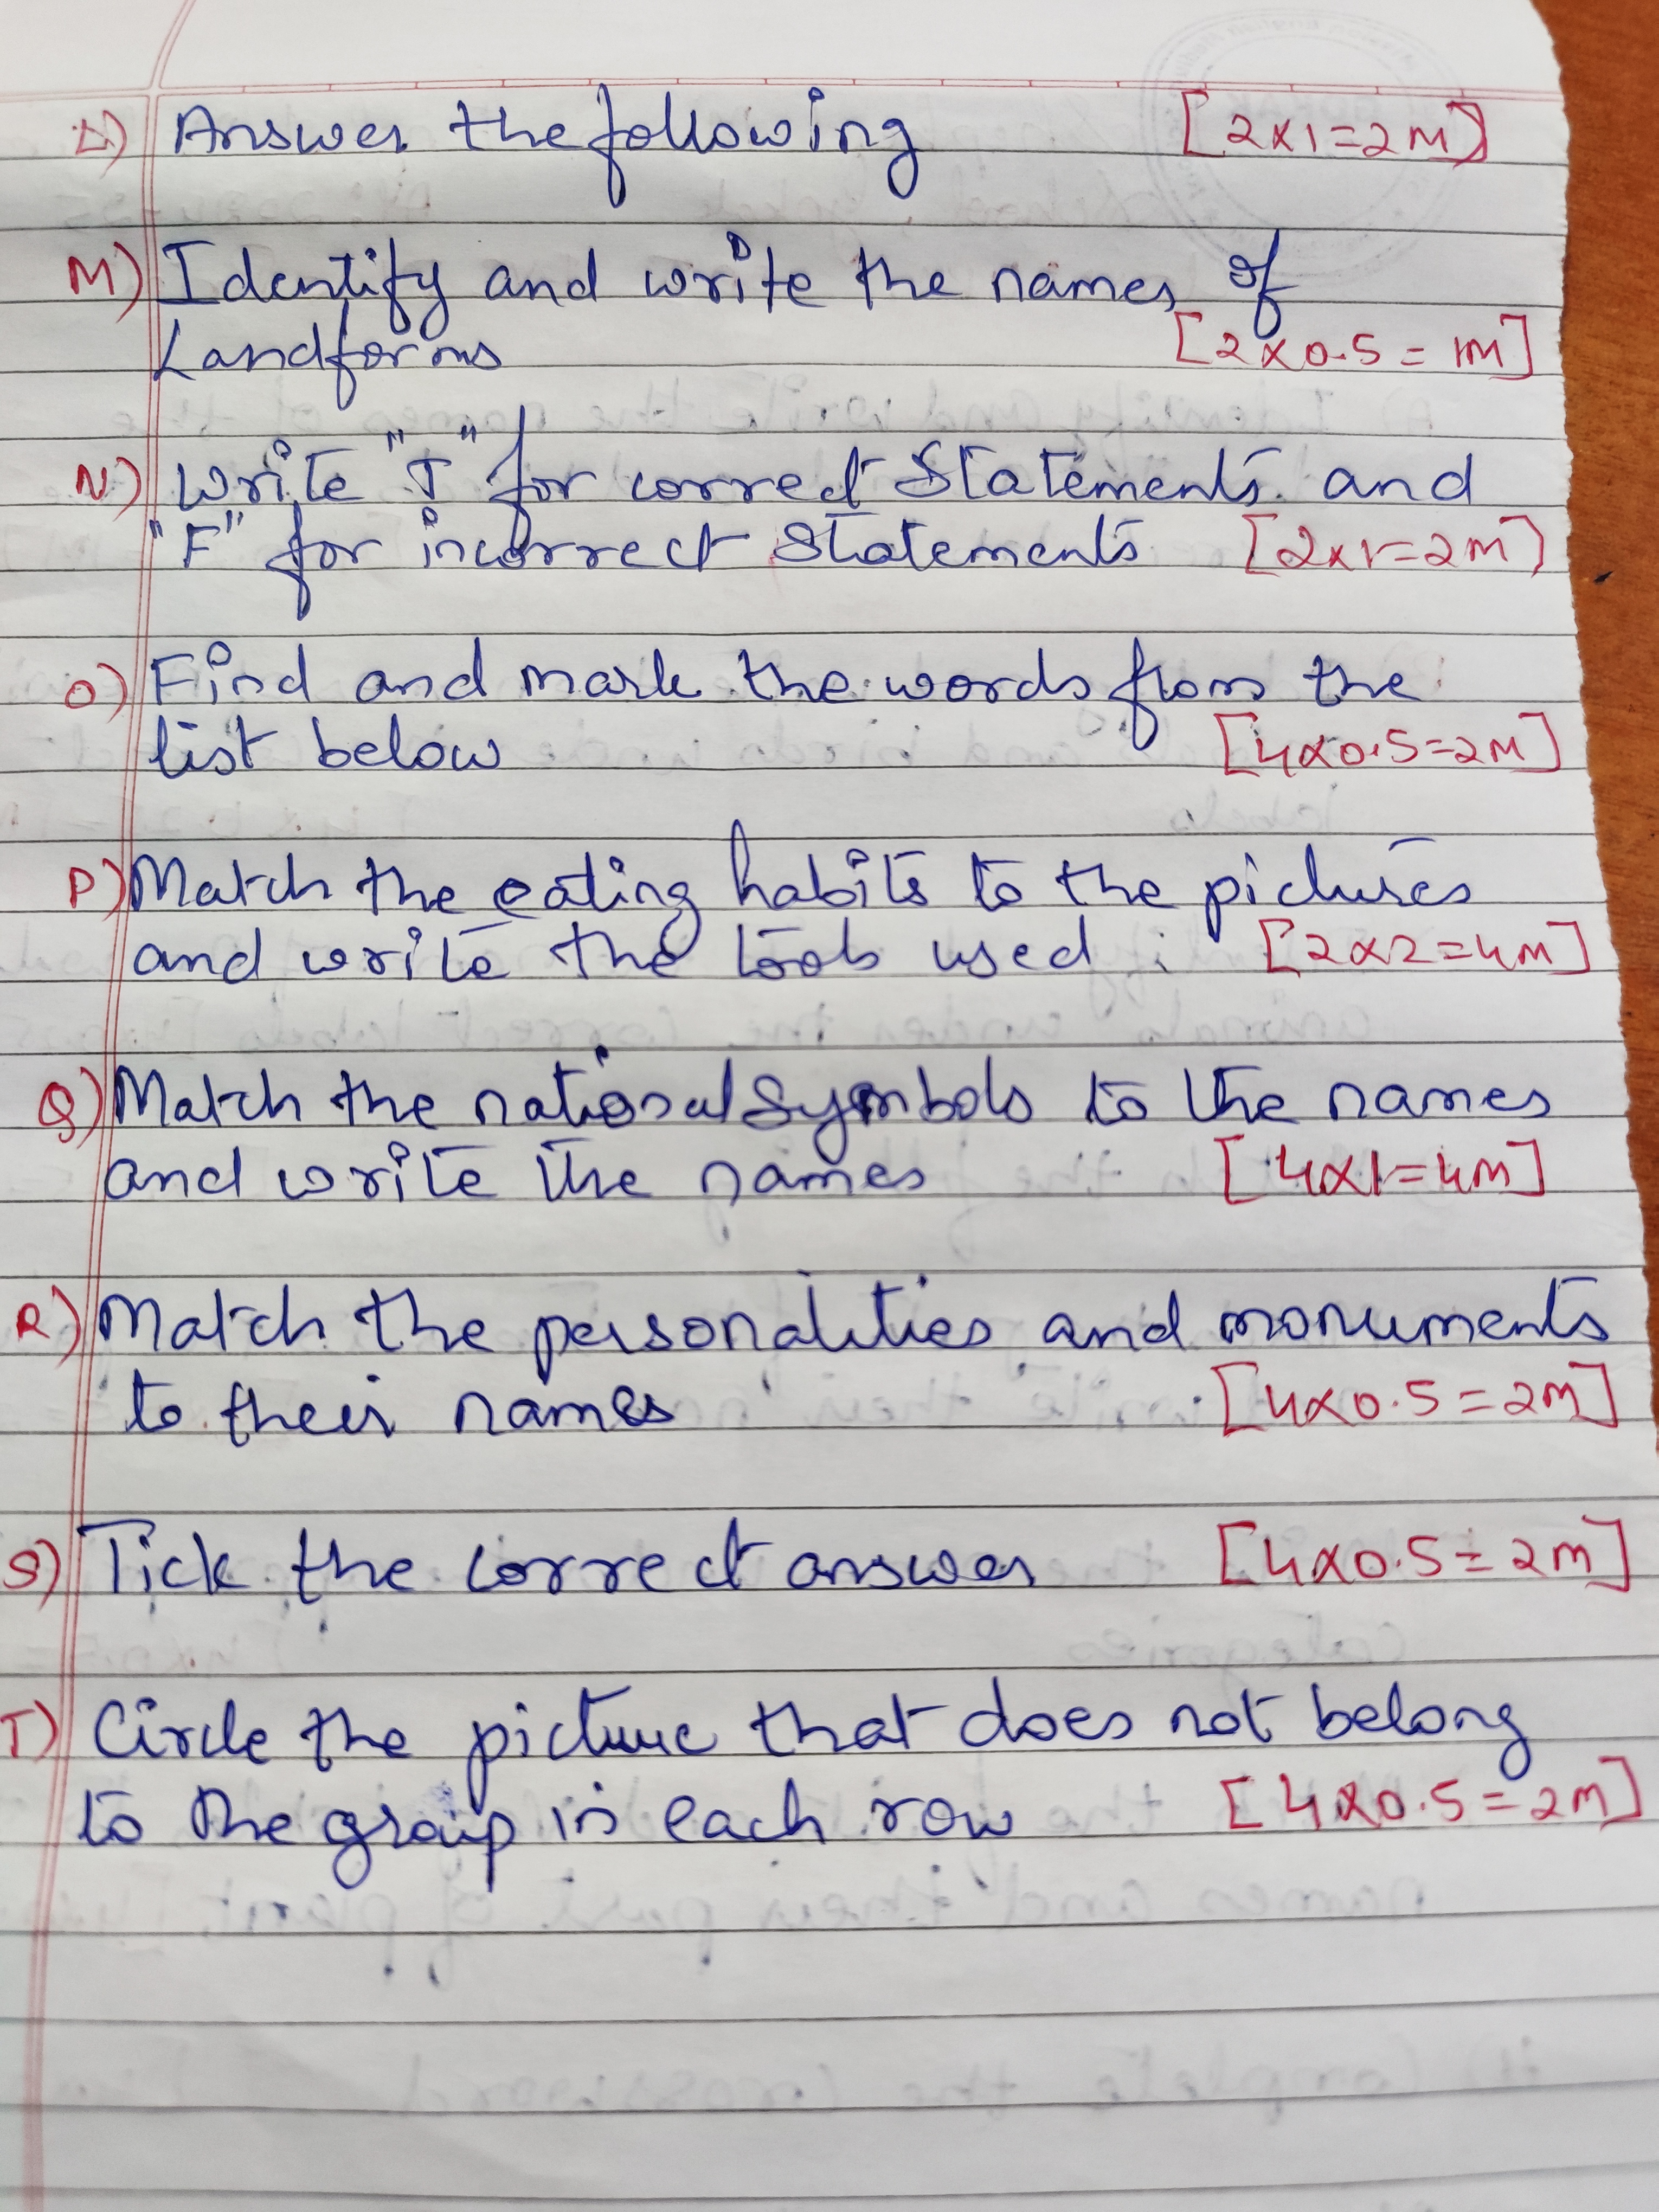 L) Answer the following [2x1=2M]
M) Identify and write the names of
Landforms [2x0.5=1M]
N) Write "T" for correct Statements and
"F" for incorrect Statements [2x1=2M]
O) Find and mark the words from the
list below [4x0.5=2M]
P) Match the eating habits to the pictures
and write the tools used : [2x2=4M]
Q) Match the national Symbols to the names
and write the names [4x1=4M]
R) Match the personalities and monuments
to their names [4x0.5=2M]
S) Tick the correct answer [4x0.5=2M]
T) Circle the picture that does not belong
to the group in each row [4x0.5=2M]